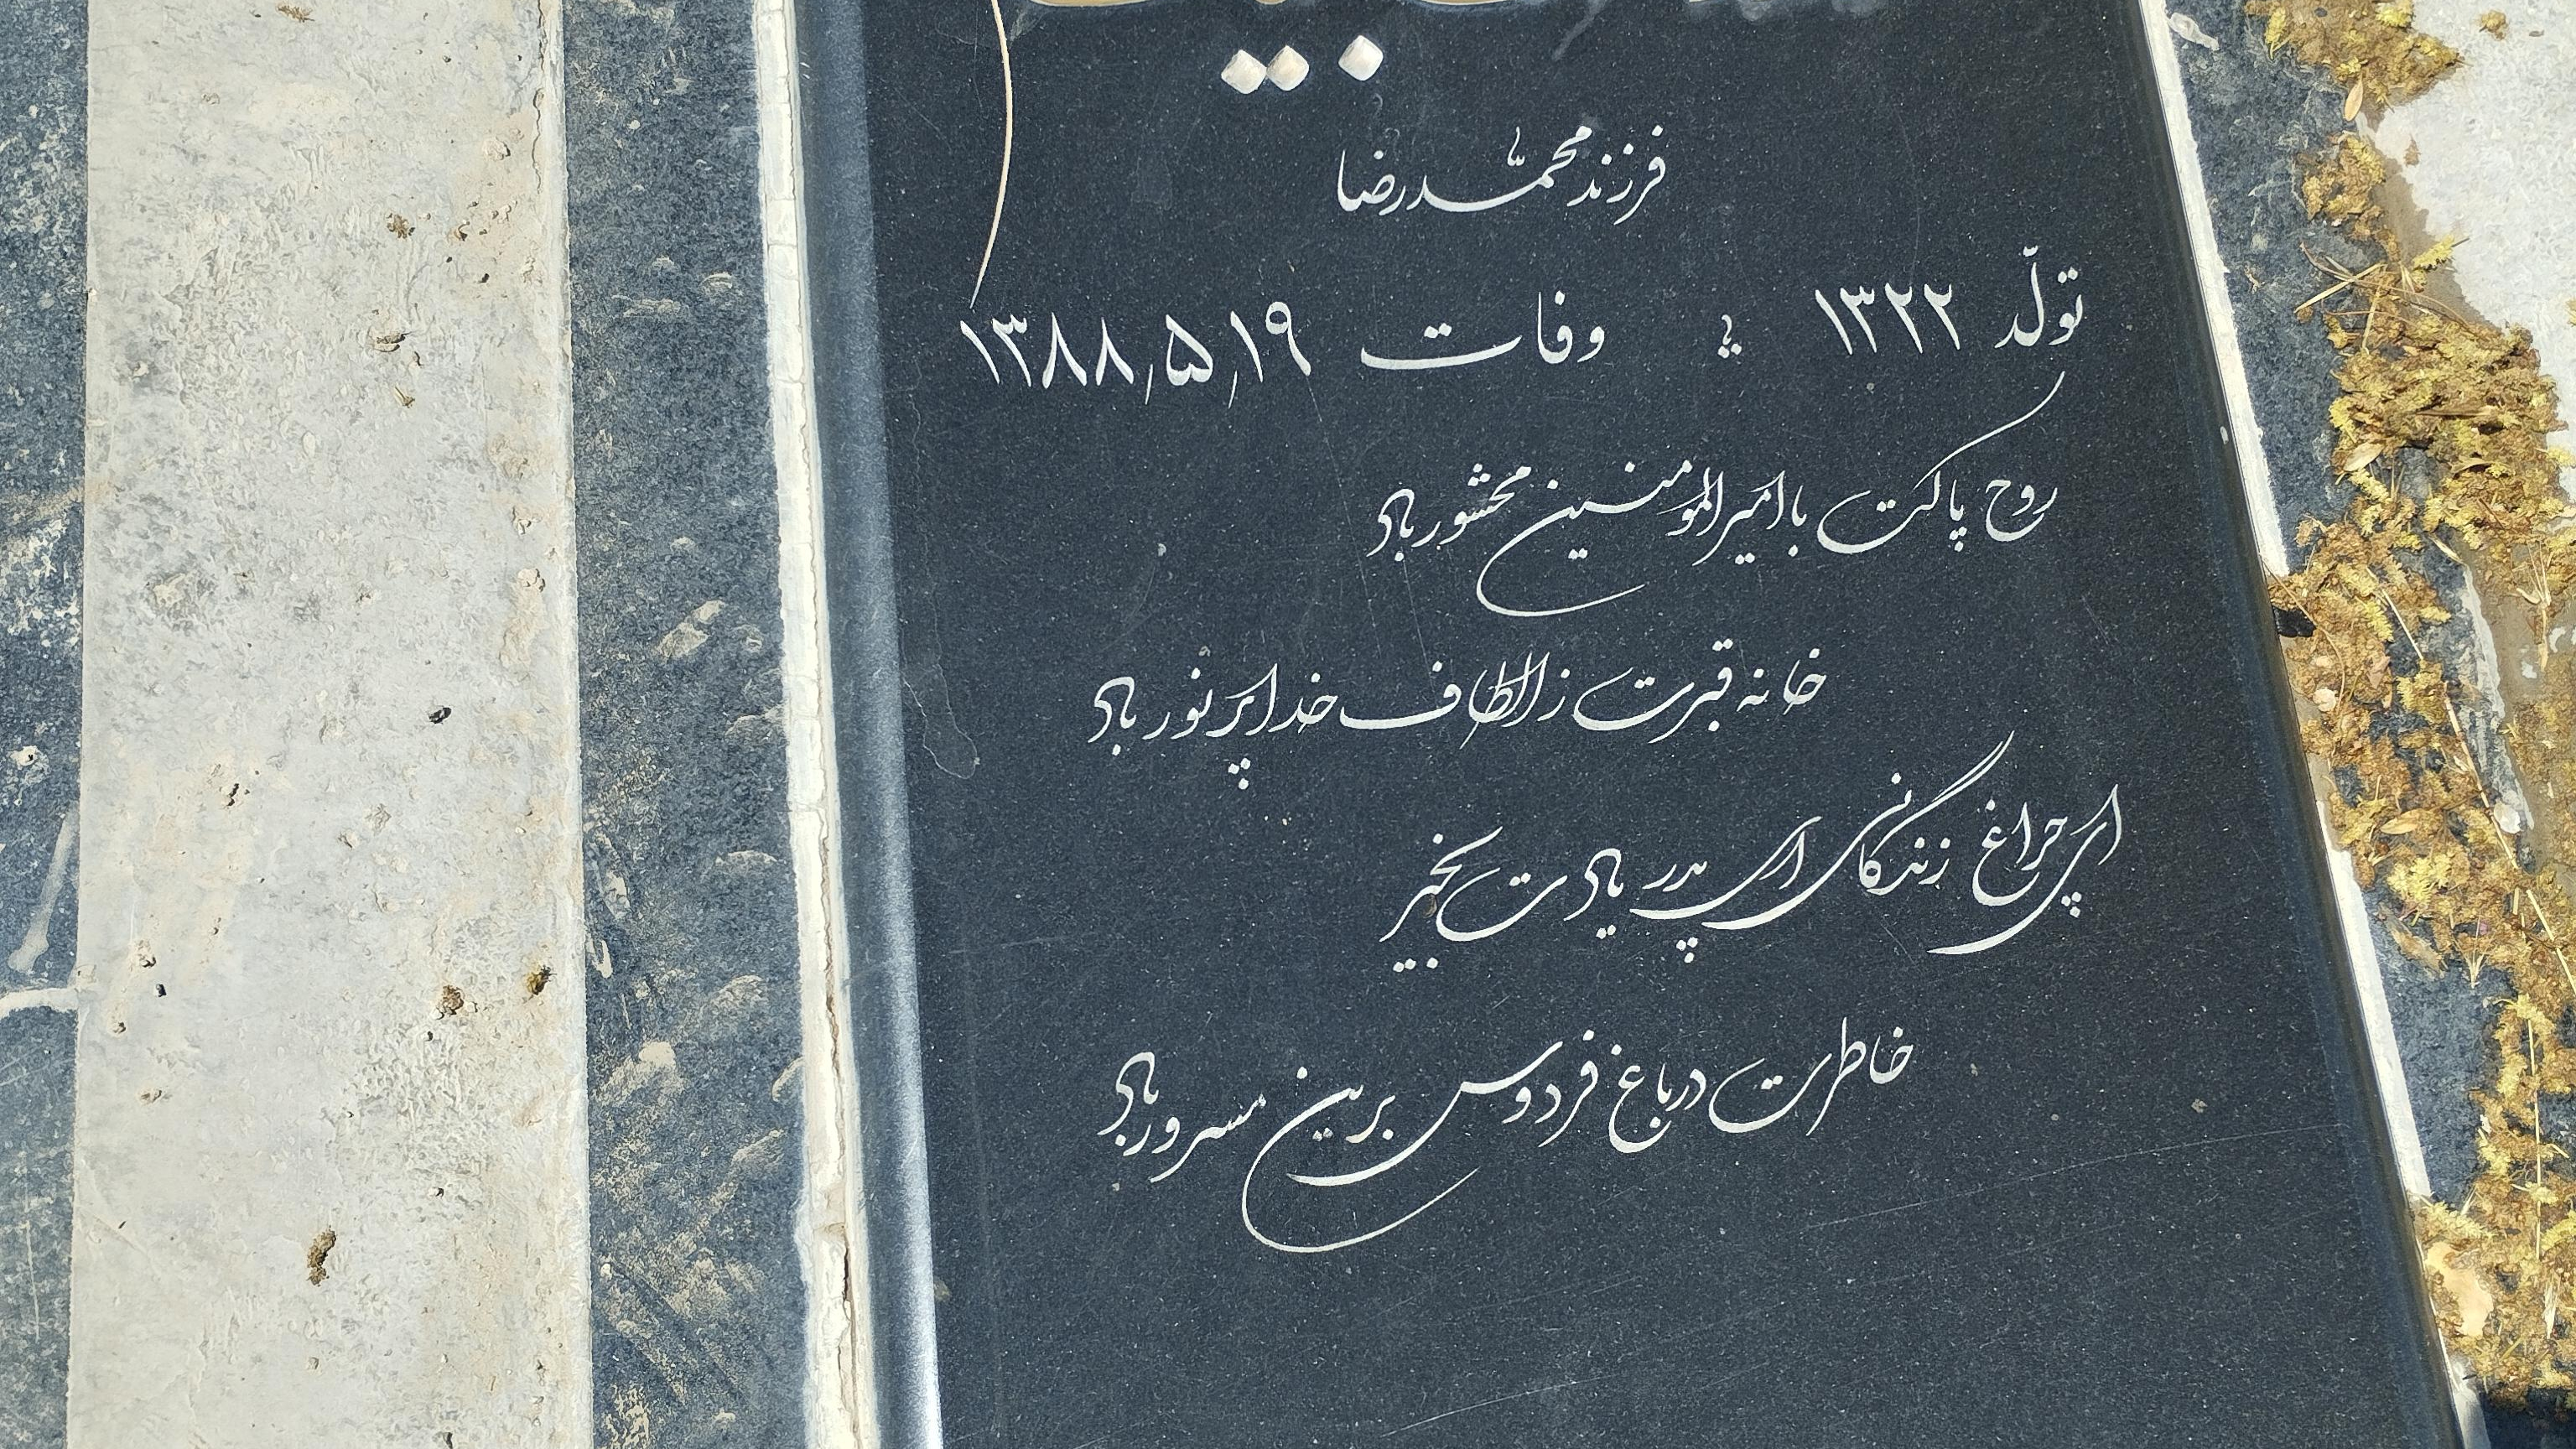 فرزند محمّدرضا
تولّد ۱۳۲۲ وفات ۱۳۸۸٫۵٫۱۹
روح پاکت با امیرالمومنین محشور باد
خانه قبرت ز الطاف خدا پر نور باد
ای چراغ زندگانی ای پدر یادت بخیر
خاطرت در باغ فردوس برین مسرور باد